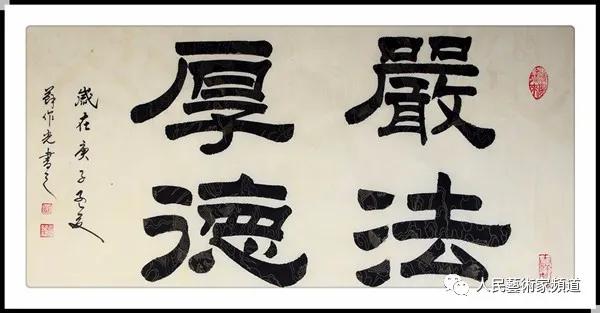 嚴法
厚德
歲在庚子夏
作光書之
人民藝術家頻道